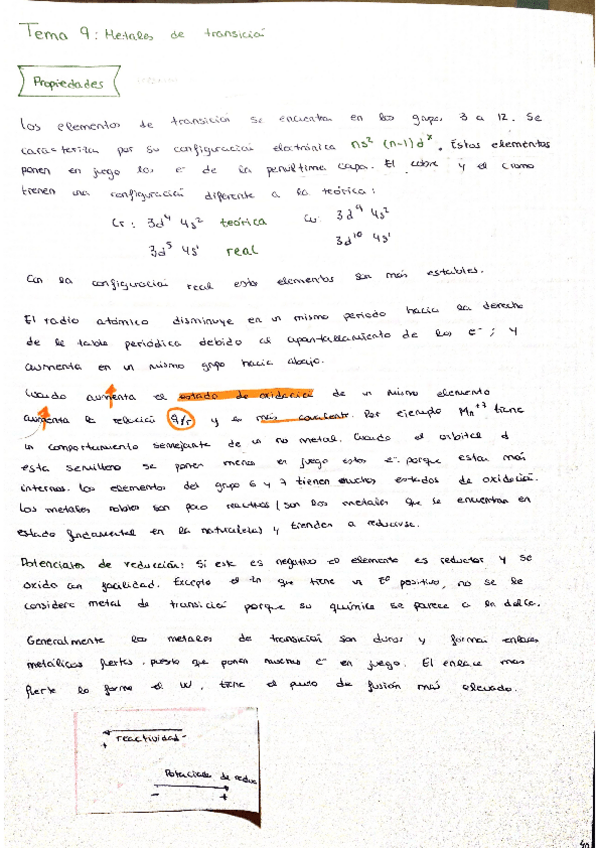 Tema 9: Metales de transición
Propiedades
Los elementos de transición se encuentran en los grupos 3 a 12. Se
caracterizan por su configuración electrónica ns² (n-1)dˣ. Estos elementos
ponen en juego los e⁻ de la penultima capa. El cobre y el cromo
tienen una configuración diferente a la teórica:
Cr: 3d⁴ 4s² teórica Cu: 3d⁹ 4s²
3d⁵ 4s¹ real 3d¹⁰ 4s¹
Con la configuración real estos elementos son más estables.
El radio atómico disminuye en un mismo periodo hacia la derecha
de la tabla periódica debido al apantallamiento de los e⁻; y
aumenta en un mismo grupo hacia abajo.
Cuando aumenta el estado de oxidación de un mismo elemento
aumenta la relación q/r y es más covalente. Por ejemplo Mn⁺⁷ tiene
un comportamiento semejante de un no metal. Cuando el orbital d
esta semilleno se ponen menos en juego estos e⁻ porque estan más
internos. Los elementos del grupo 6 y 7 tienen muchos estados de oxidación.
Los metales nobles son poco reactivos (son los metales que se encuentran en
estado fundamental en la naturaleza) y tienden a reducirse.
Potenciales de reducción: Si este es negativo el elemento es reductor y se
oxida con facilidad. Excepto el Zn que tiene un E⁰ positivo, no se le
considera metal de transición porque su química se parece a la del Ca.
Generalmente los metales de transición son duros y forman enlaces
metálicos fuertes, puesto que ponen muchos e⁻ en juego. El enlace mas
fuerte lo forma el W, tiene el punto de fusión más elevado.
reactividad -
+
Potenciales de reduc
- +